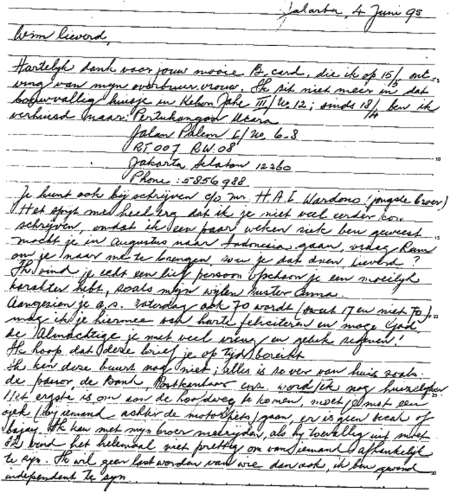 Jakarta, 4 Juni 95
Wim lieverd,
Hartelijk dank voor jouw mooie B. card, die ik op 15/5 ont
ving van mijn overbuurvrouw. Ik zit niet meer in dat
bouwvallig huisje in Kebon Jahe III/No 12; sinds 18/4 ben ik
verhuisd naar: Pertukangan Utara
Jalan Palem 6/No. 6-8
RT.007 RW.08
Jakarta Selatan 12260
Phone: 5856988
Je kunt ook bij schrijven c/o Mr. H.A.E. Wardono (jongste broer)
Het spijt me heel erg dat ik je niet veel eerder kon
schrijven, omdat ik een paar weken ziek ben geweest
mocht je in Augustus naar Indonesia gaan, vraag
om je naar me te brengen zou je dat doen lieverd?
Ik vind je echt een lief persoon ofschoon je een moeilijk
karakter hebt, zoals mijn wijlen zuster Anna.
Aangezien je a.s. zaterdag ook 70 wordt (17 en niet 70)
mag ik je hiermee van harte feliciteren en moge God
de Almachtige je met veel vreugd en geluk zegenen!
Ik hoop dat deze brief je op tijd bereikt
Ik ken deze buurt nog niet; alles is zo ver van huis zoals:
de pasar, de Bank, Postkantoor enz. word ik nog
Het ergste is om aan de hoofdweg te komen, moet je met een
ojek (bij iemand achter de motorfiets) gaan, er is geen becak of
bajaj. Ik kan met mijn broer meerijden, als hij toevallig uit moet
Ik vind het helemaal niet prettig om van iemand afhankelijk
te zijn. Ik wil geen last worden van wie dan ook, ik ben gewend
independent te zijn